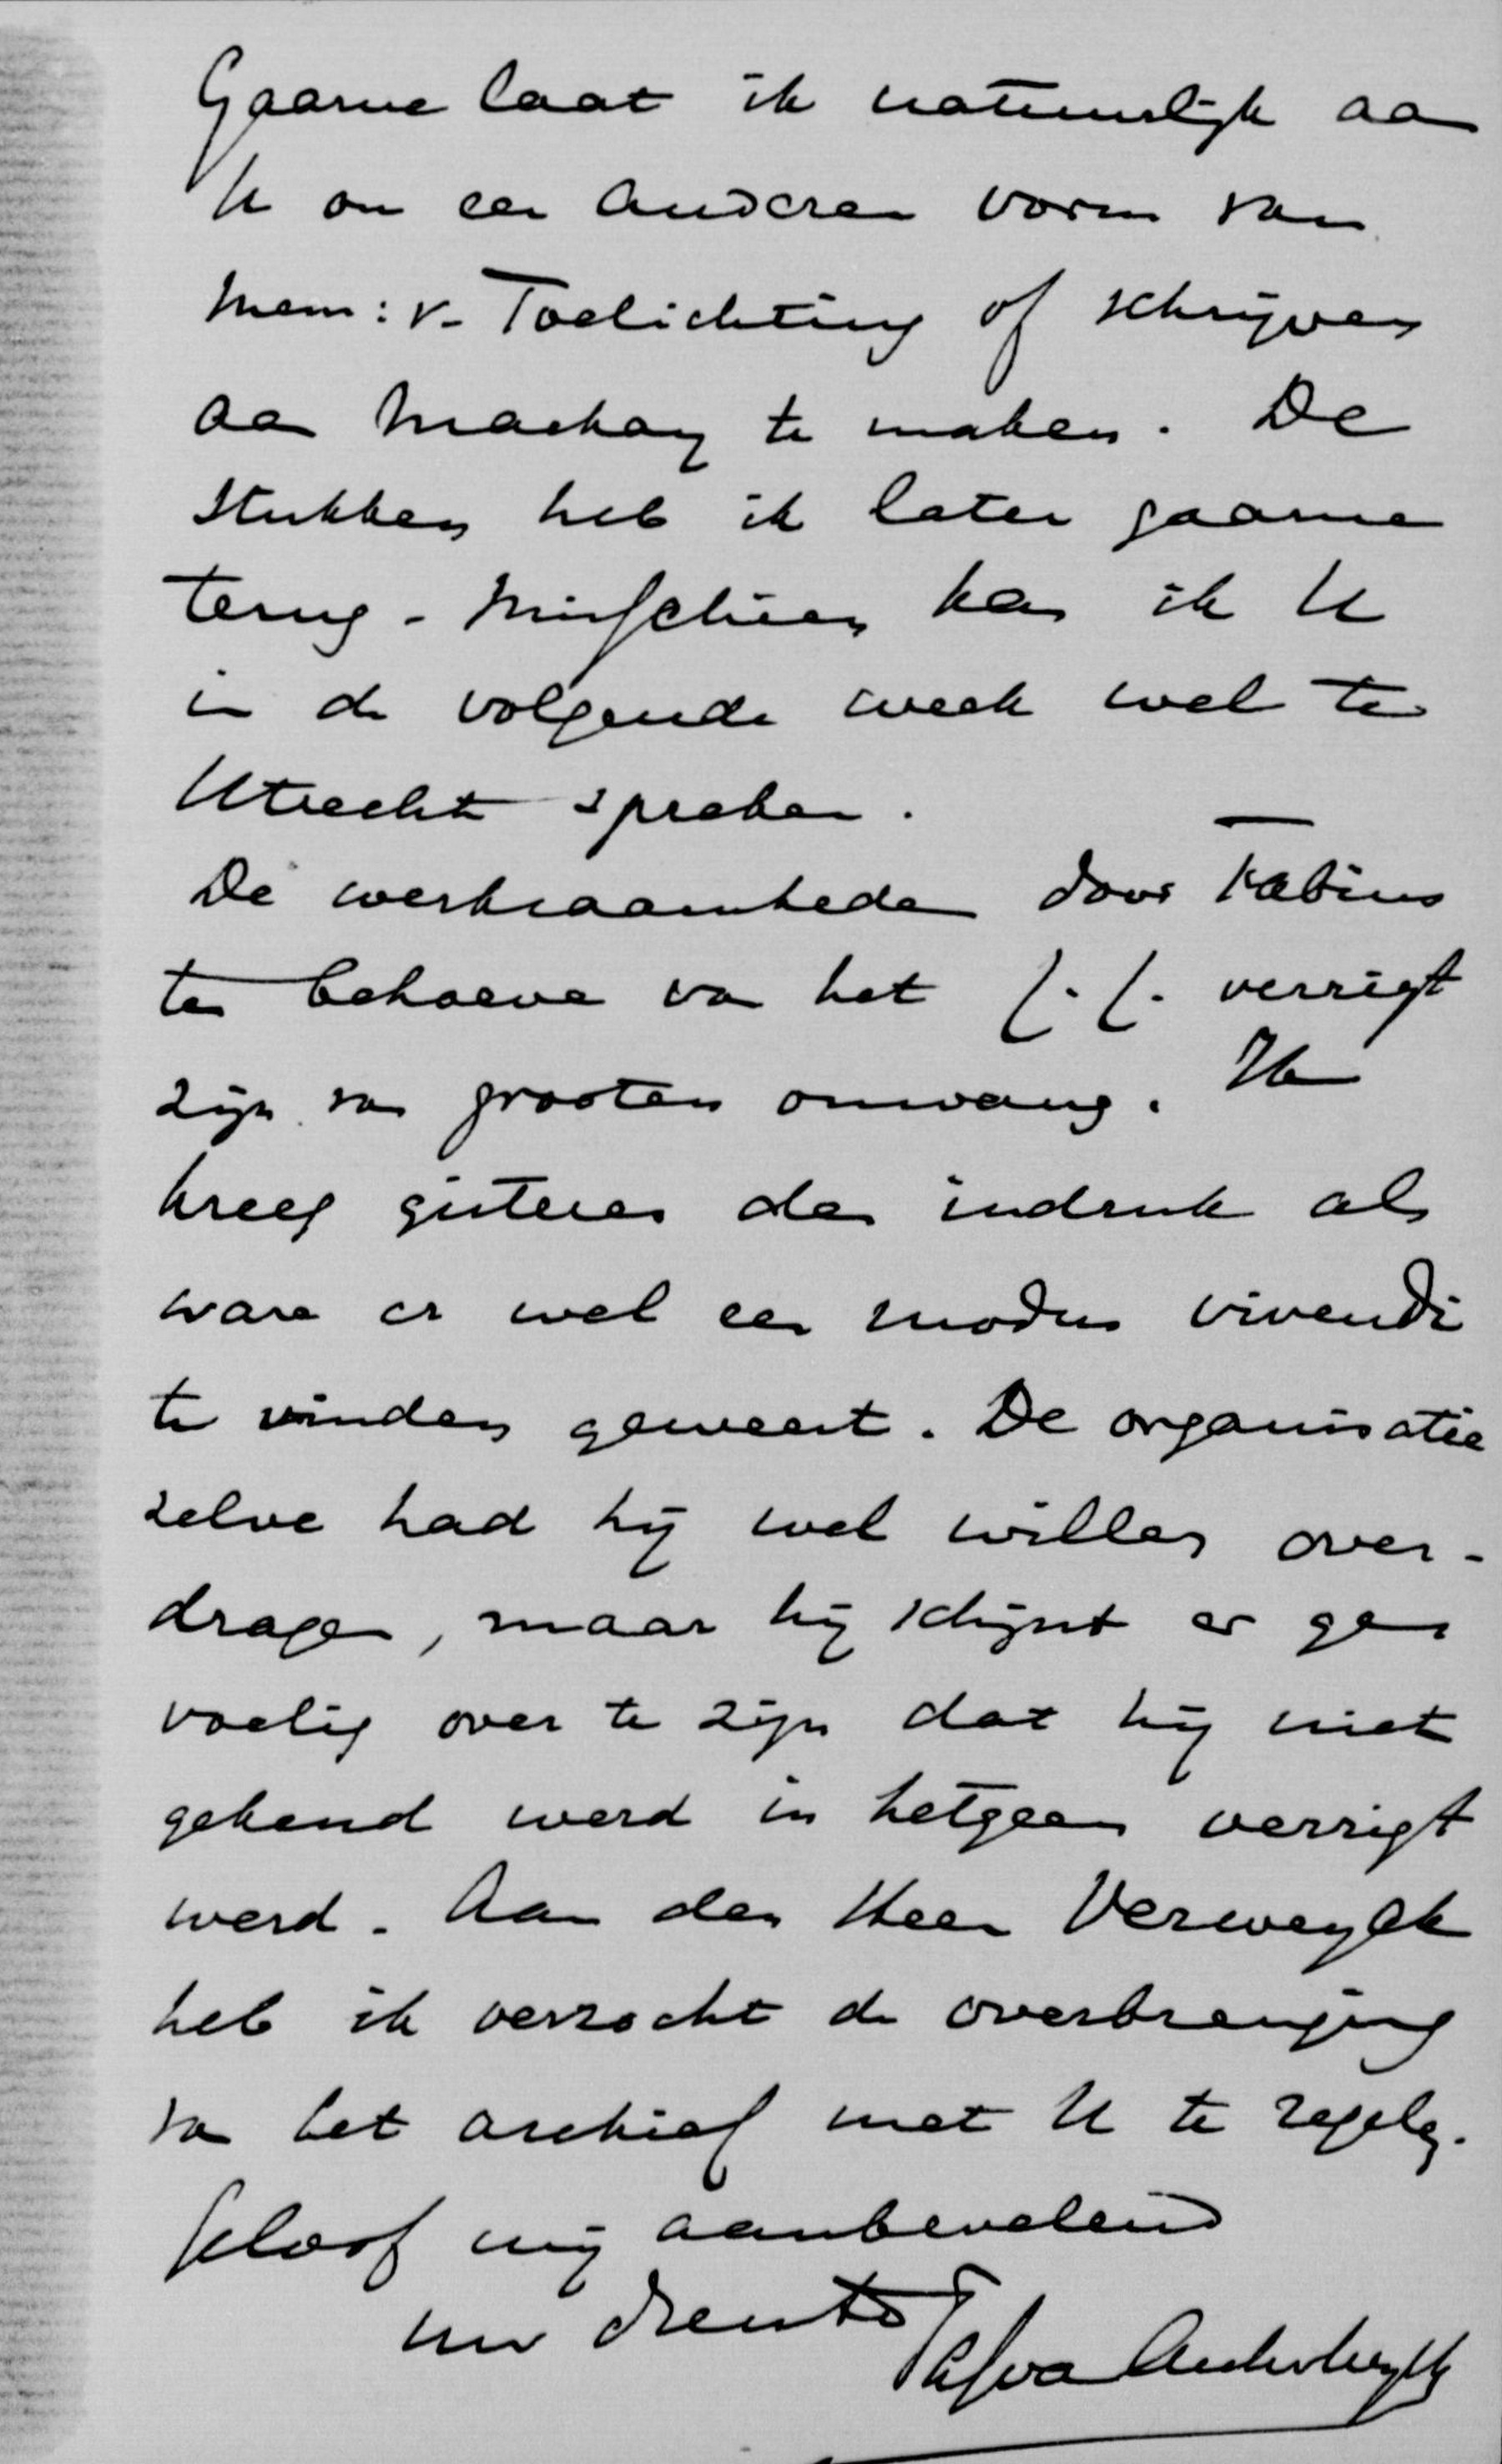 Gaarne laat ik natuurlijk aan
U om een anderen vorm van
Mem: v. Toelichting of schrijven
aan Mackay te maken. De
stukken heb ik later gaarne
terug. Misschien kan ik U
in de volgende week wel te
Utrecht spreken.
De werkzaamheden door Fabius
ten behoeve van het C. C. verrigt
zijn van grooten omvang. Ik
kreeg gisteren den indruk als
ware er wel een modus vivendi
te vinden geweest. De organisatie
zelve had hij wel willen over-
dragen, maar hij schijnt er ge-
voelig over te zijn dat hij niet
gekend werd in hetgeen verrigt
werd. Aan den Heer Verweyck
heb ik verzocht de overbrenging
van het archief met U te regelen.
Geloof mij aanbevelend
uw